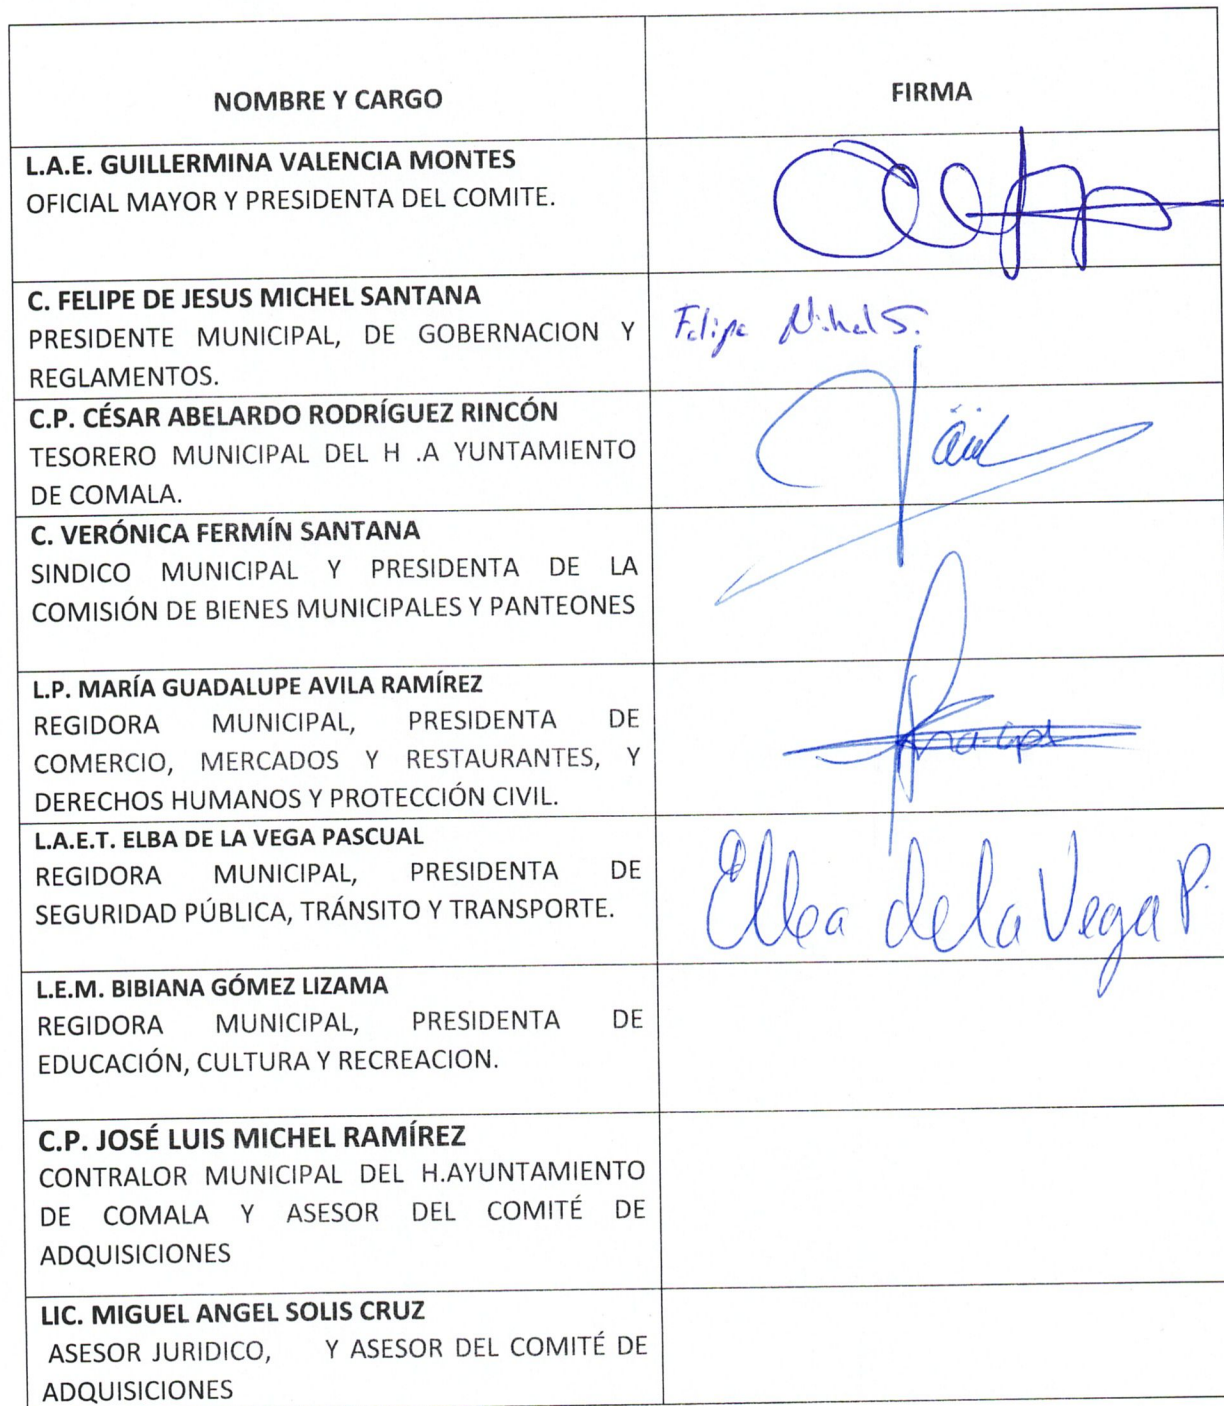 NOMBRE Y CARGO
FIRMA
L.A.E. GUILLERMINA VALENCIA MONTES
OFICIAL MAYOR Y PRESIDENTA DEL COMITE.
C. FELIPE DE JESUS MICHEL SANTANA
PRESIDENTE MUNICIPAL, DE GOBERNACION Y
REGLAMENTOS.
Felipe Michel S.
C.P. CÉSAR ABELARDO RODRÍGUEZ RINCÓN
TESORERO MUNICIPAL DEL H .A YUNTAMIENTO
DE COMALA.
C. VERÓNICA FERMÍN SANTANA
SINDICO MUNICIPAL Y PRESIDENTA DE LA
COMISIÓN DE BIENES MUNICIPALES Y PANTEONES
L.P. MARÍA GUADALUPE AVILA RAMÍREZ
REGIDORA MUNICIPAL, PRESIDENTA DE
COMERCIO, MERCADOS Y RESTAURANTES, Y
DERECHOS HUMANOS Y PROTECCIÓN CIVIL.
L.A.E.T. ELBA DE LA VEGA PASCUAL
REGIDORA MUNICIPAL, PRESIDENTA DE
SEGURIDAD PÚBLICA, TRÁNSITO Y TRANSPORTE.
Elba de la Vega P.
L.E.M. BIBIANA GÓMEZ LIZAMA
REGIDORA MUNICIPAL, PRESIDENTA DE
EDUCACIÓN, CULTURA Y RECREACION.
C.P. JOSÉ LUIS MICHEL RAMÍREZ
CONTRALOR MUNICIPAL DEL H.AYUNTAMIENTO
DE COMALA Y ASESOR DEL COMITÉ DE
ADQUISICIONES
LIC. MIGUEL ANGEL SOLIS CRUZ
ASESOR JURIDICO, Y ASESOR DEL COMITÉ DE
ADQUISICIONES